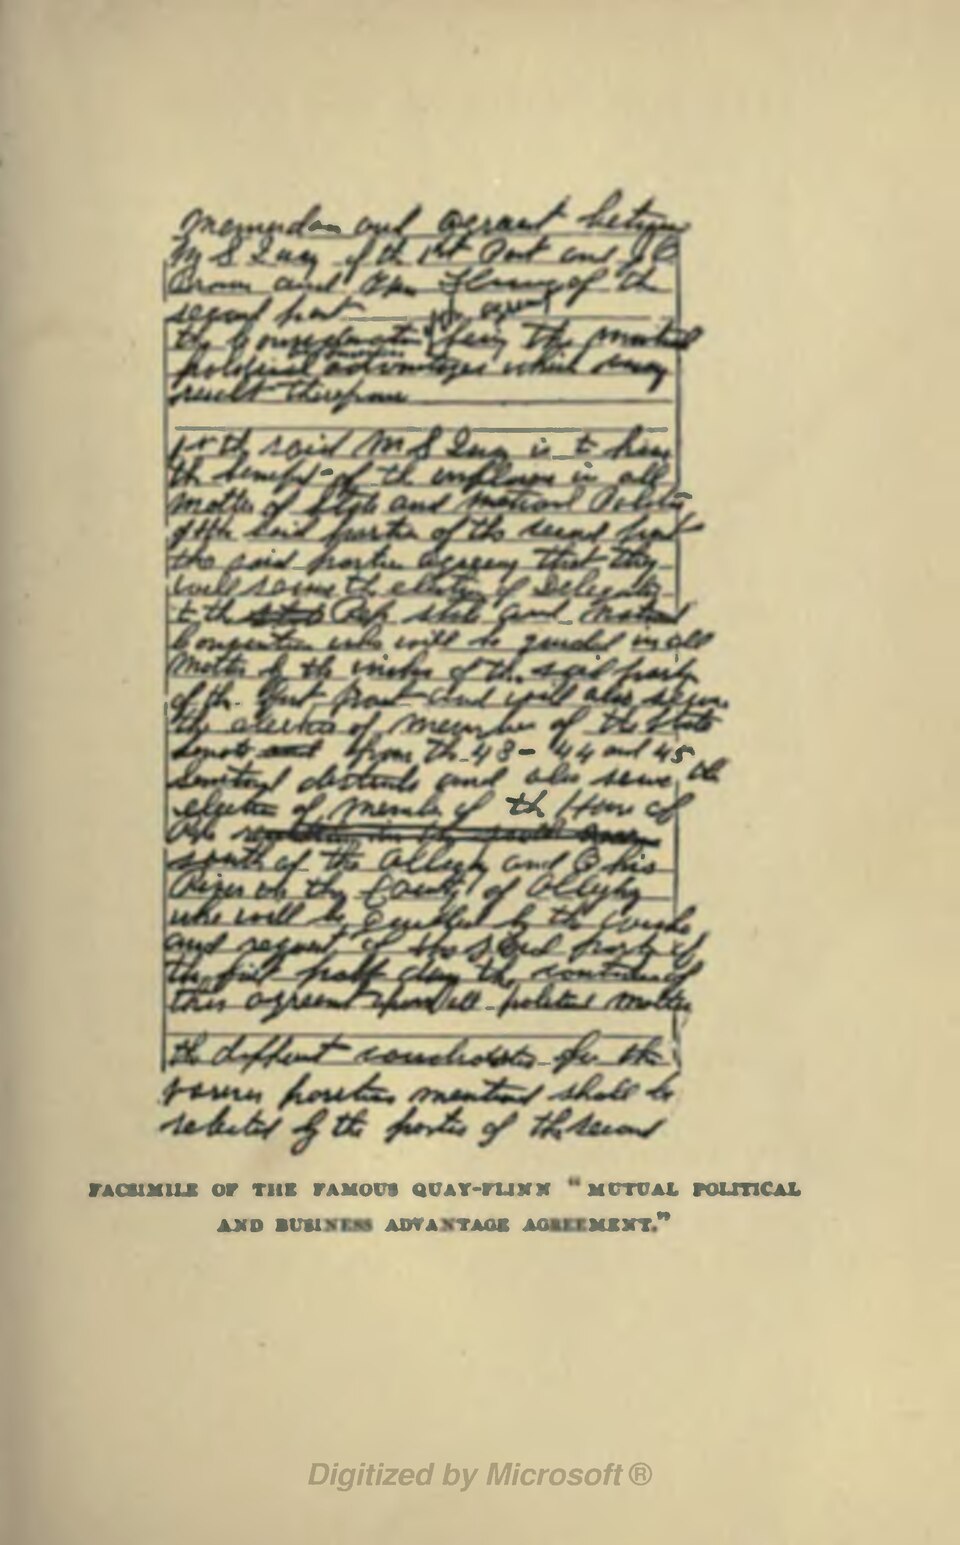 Memorandum and agreement between
M S Quay of the 1st Part and J O
Brown and Wm Flinn of the
second part
for agreement
the consideration being the mutual
political advantages which may
result therefrom
1st the said M S Quay is to have
the benefit of the influence in all
matters of State and National Politics
of the said parties of the second part
the said parties agreeing that they
will secure the election of Delegates
to the Rep State and National
Convention who will be guided in all
matters by the wishes of the said party
of the first Part and will also secure
the election of members of the State
Senate from the 43 - 44 and 45
Senatorial districts and also secure the
election of members of the House of
Rep
south of the Allegheny and Ohio
River in the County of Allegheny
who will be by the
and request of the said party of
the first part during the continuance of
this agreement upon all political matters
the different candidates for the
various positions mentioned shall be
selected by the parties of the second
FACSIMILE OF THE FAMOUS QUAY-FLINN "MUTUAL POLITICAL
AND BUSINESS ADVANTAGE AGREEMENT."
Digitized by Microsoft ®